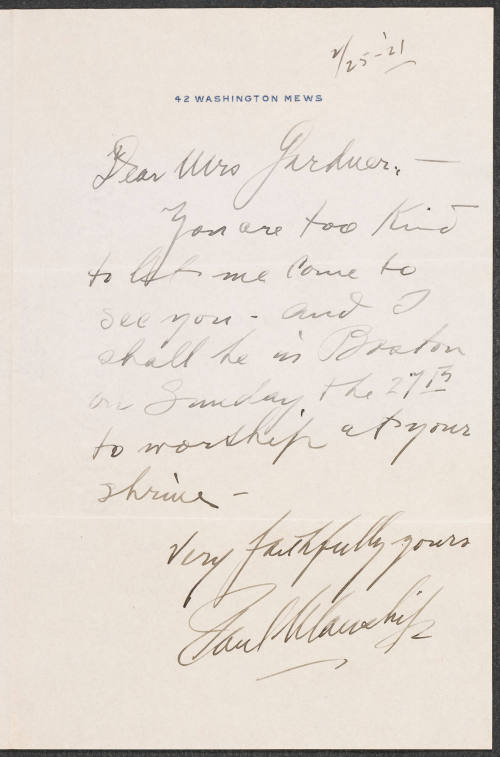 2/25-'21
42 WASHINGTON MEWS
Dear Mrs Gardner, —
You are too Kind
to let me come to
see you - and I
shall be in Boston
on Sunday the 27th
to worship at your
shrine -
Very faithfully yours
Paul Manship